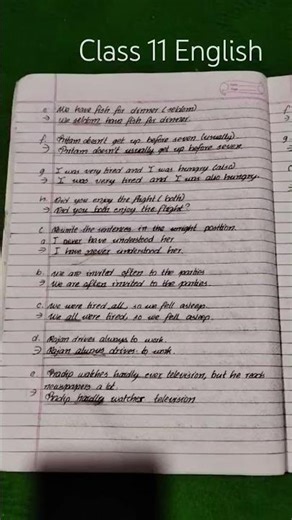 Class 11 English
e. We have fish for dinner (seldom)
→ We seldom have fish for dinner.
f. Pritam doesn't get up before seven (usually)
→ Pritam doesn't usually get up before seven.
g. I was very tired and I was hungry (also)
→ I was very tired and I was also hungry.
h. Did you enjoy the flight (both)
→ Did you both enjoy the flight?
c. Rewrite the sentences in the wright position.
a. I never have understood her.
→ I have never understood her.
b. We are invited often to the parties
→ We are often invited to the parties.
c. We were tired all, so we fell asleep.
→ We all were tired, so we fell asleep.
d. Rajan drives always to work.
→ Rajan always drives to work
e. Pradip watches hardly ever television, but he reads
newspapers a lot.
→ Pradip hardly watches television